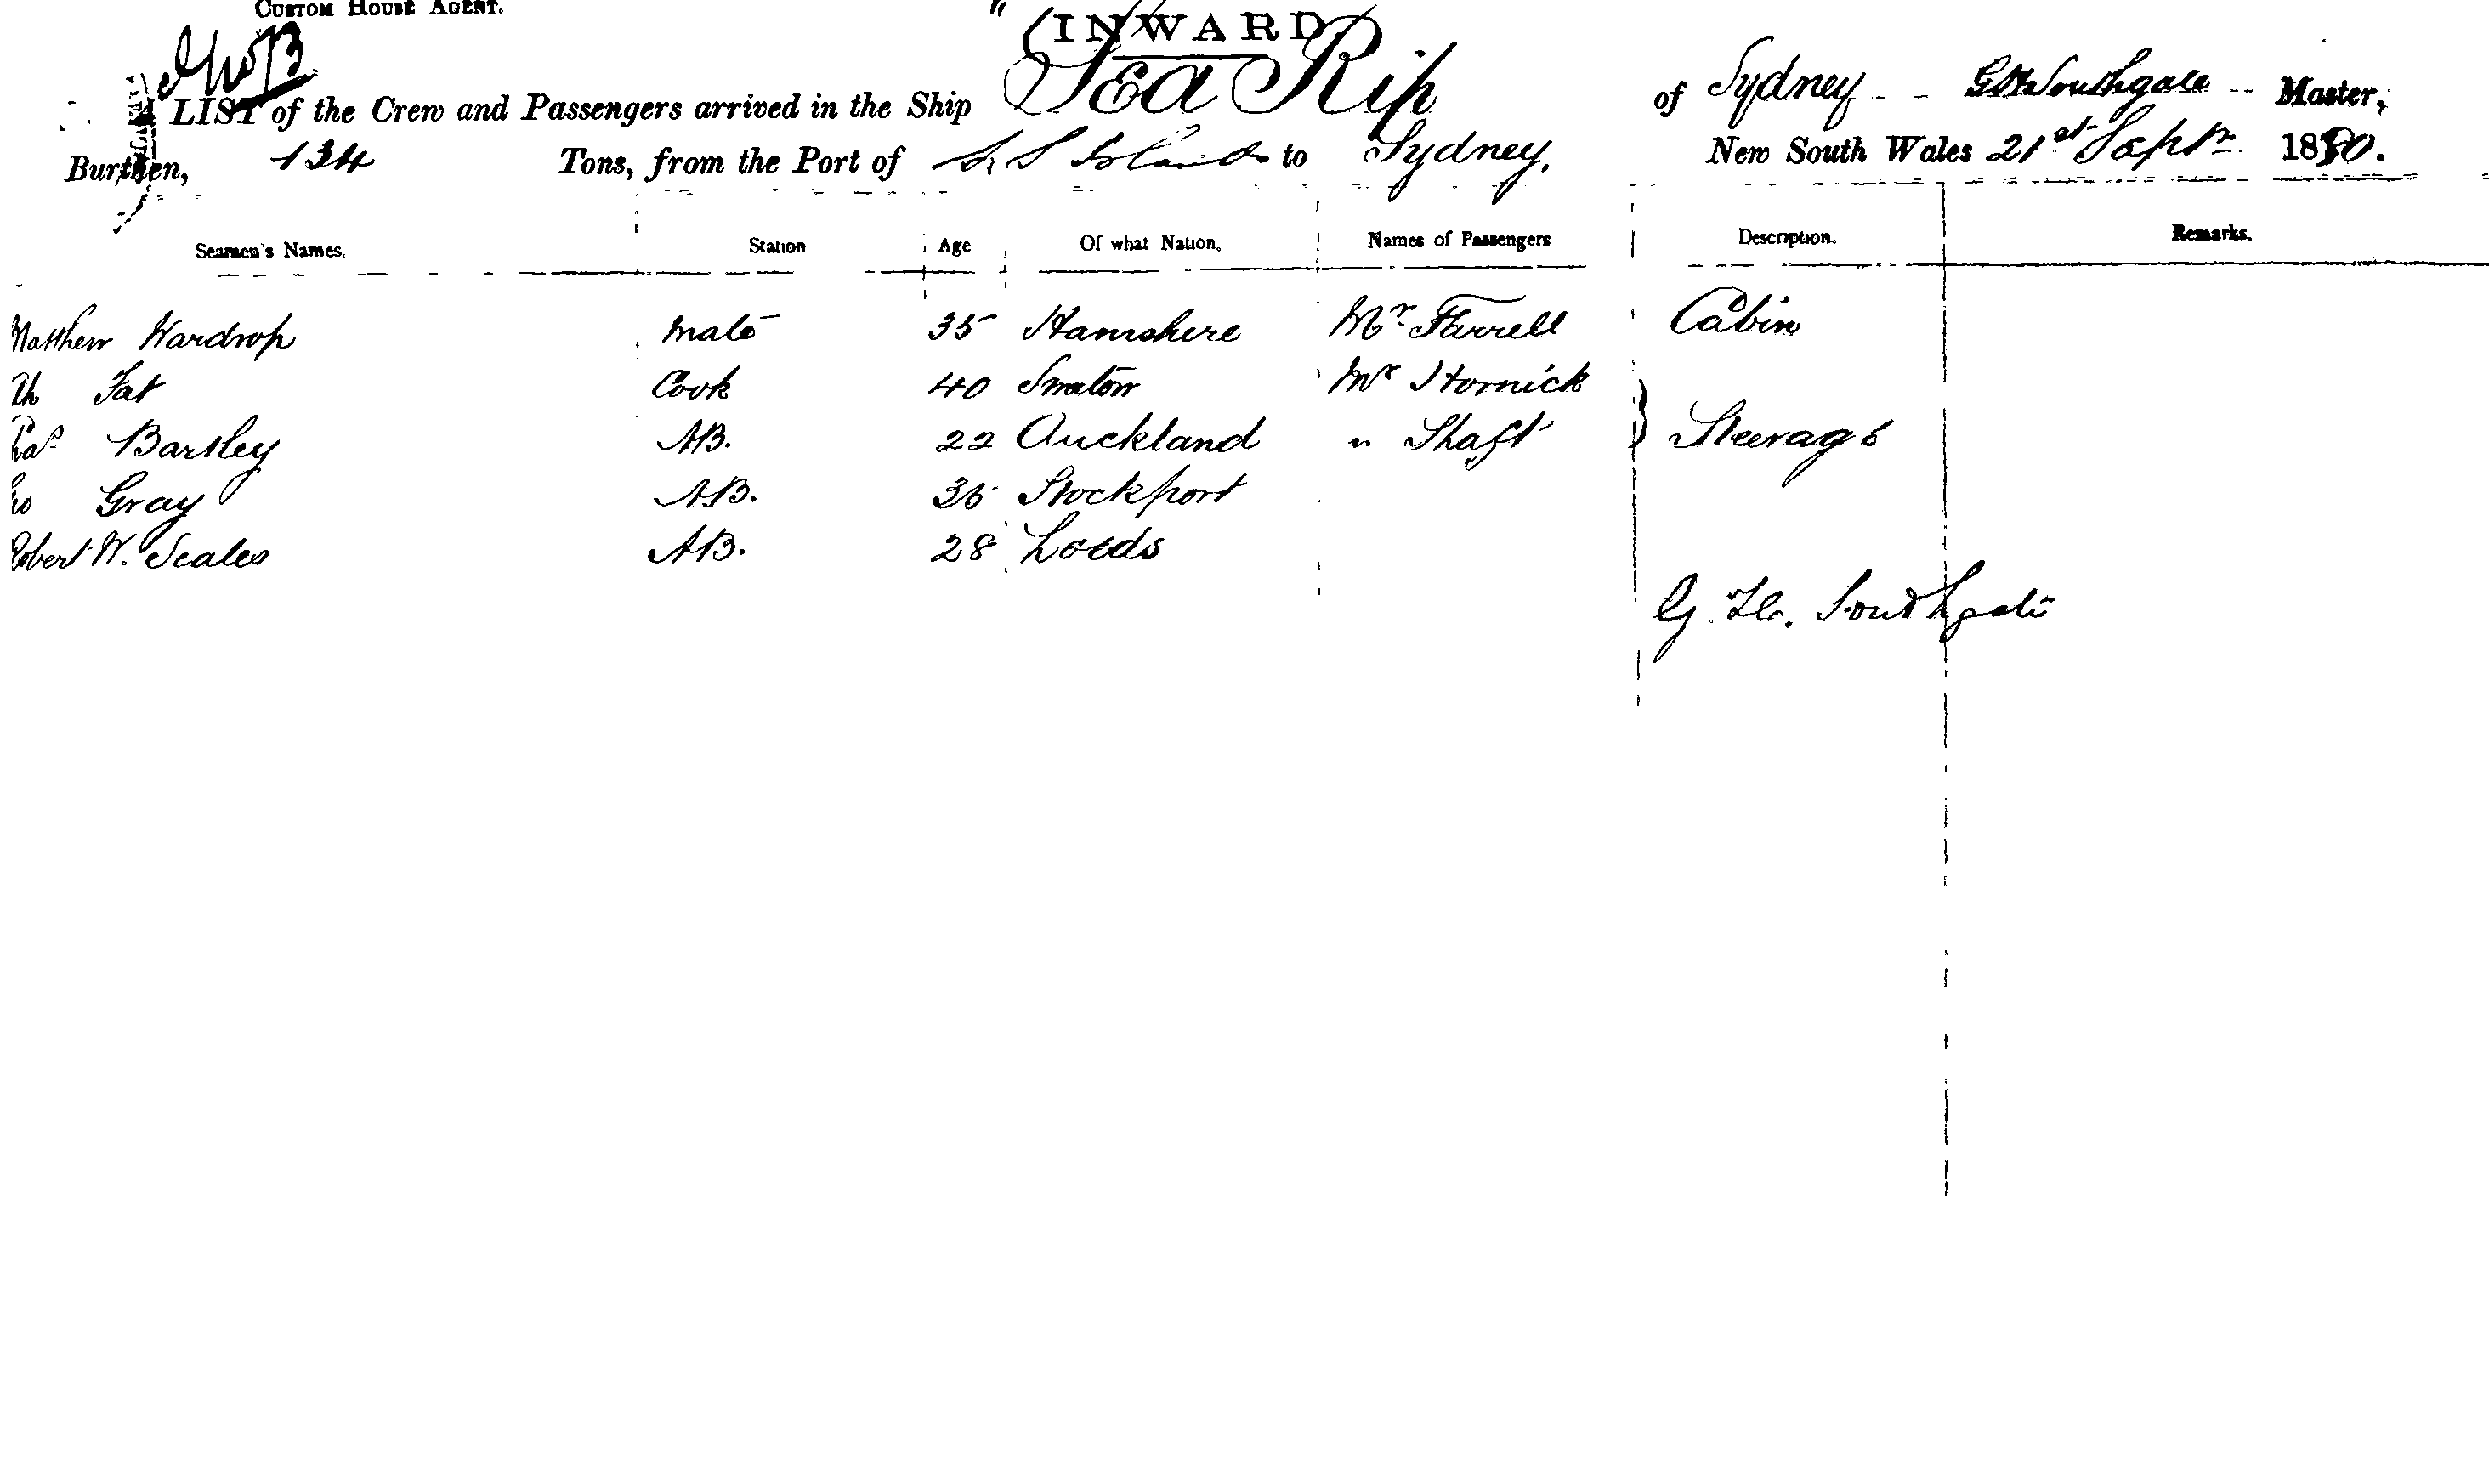 CUSTOM HOUSE AGENT.
" INWARD
A LIST of the Crew and Passengers arrived in the Ship Sea Rip of Sydney G H Southgate Master,
Burthen, 134 Tons, from the Port of S. S Islands to Sydney. New South Wales 21st Septr 1880.
Seamen's Names. Station Age Of what Nation. Names of Passengers Description. Remarks.
Matthew Wardrop Mate 35 Hamshire Mr Farrell Cabin
Ah Fat Cook 40 Mr Stornick
Bartley AB. 22 Auckland " Shaft } Steerage
Gray AB. 36 Stockport
Robert W. Scales AB. 28 Leeds
G. H. Southgate